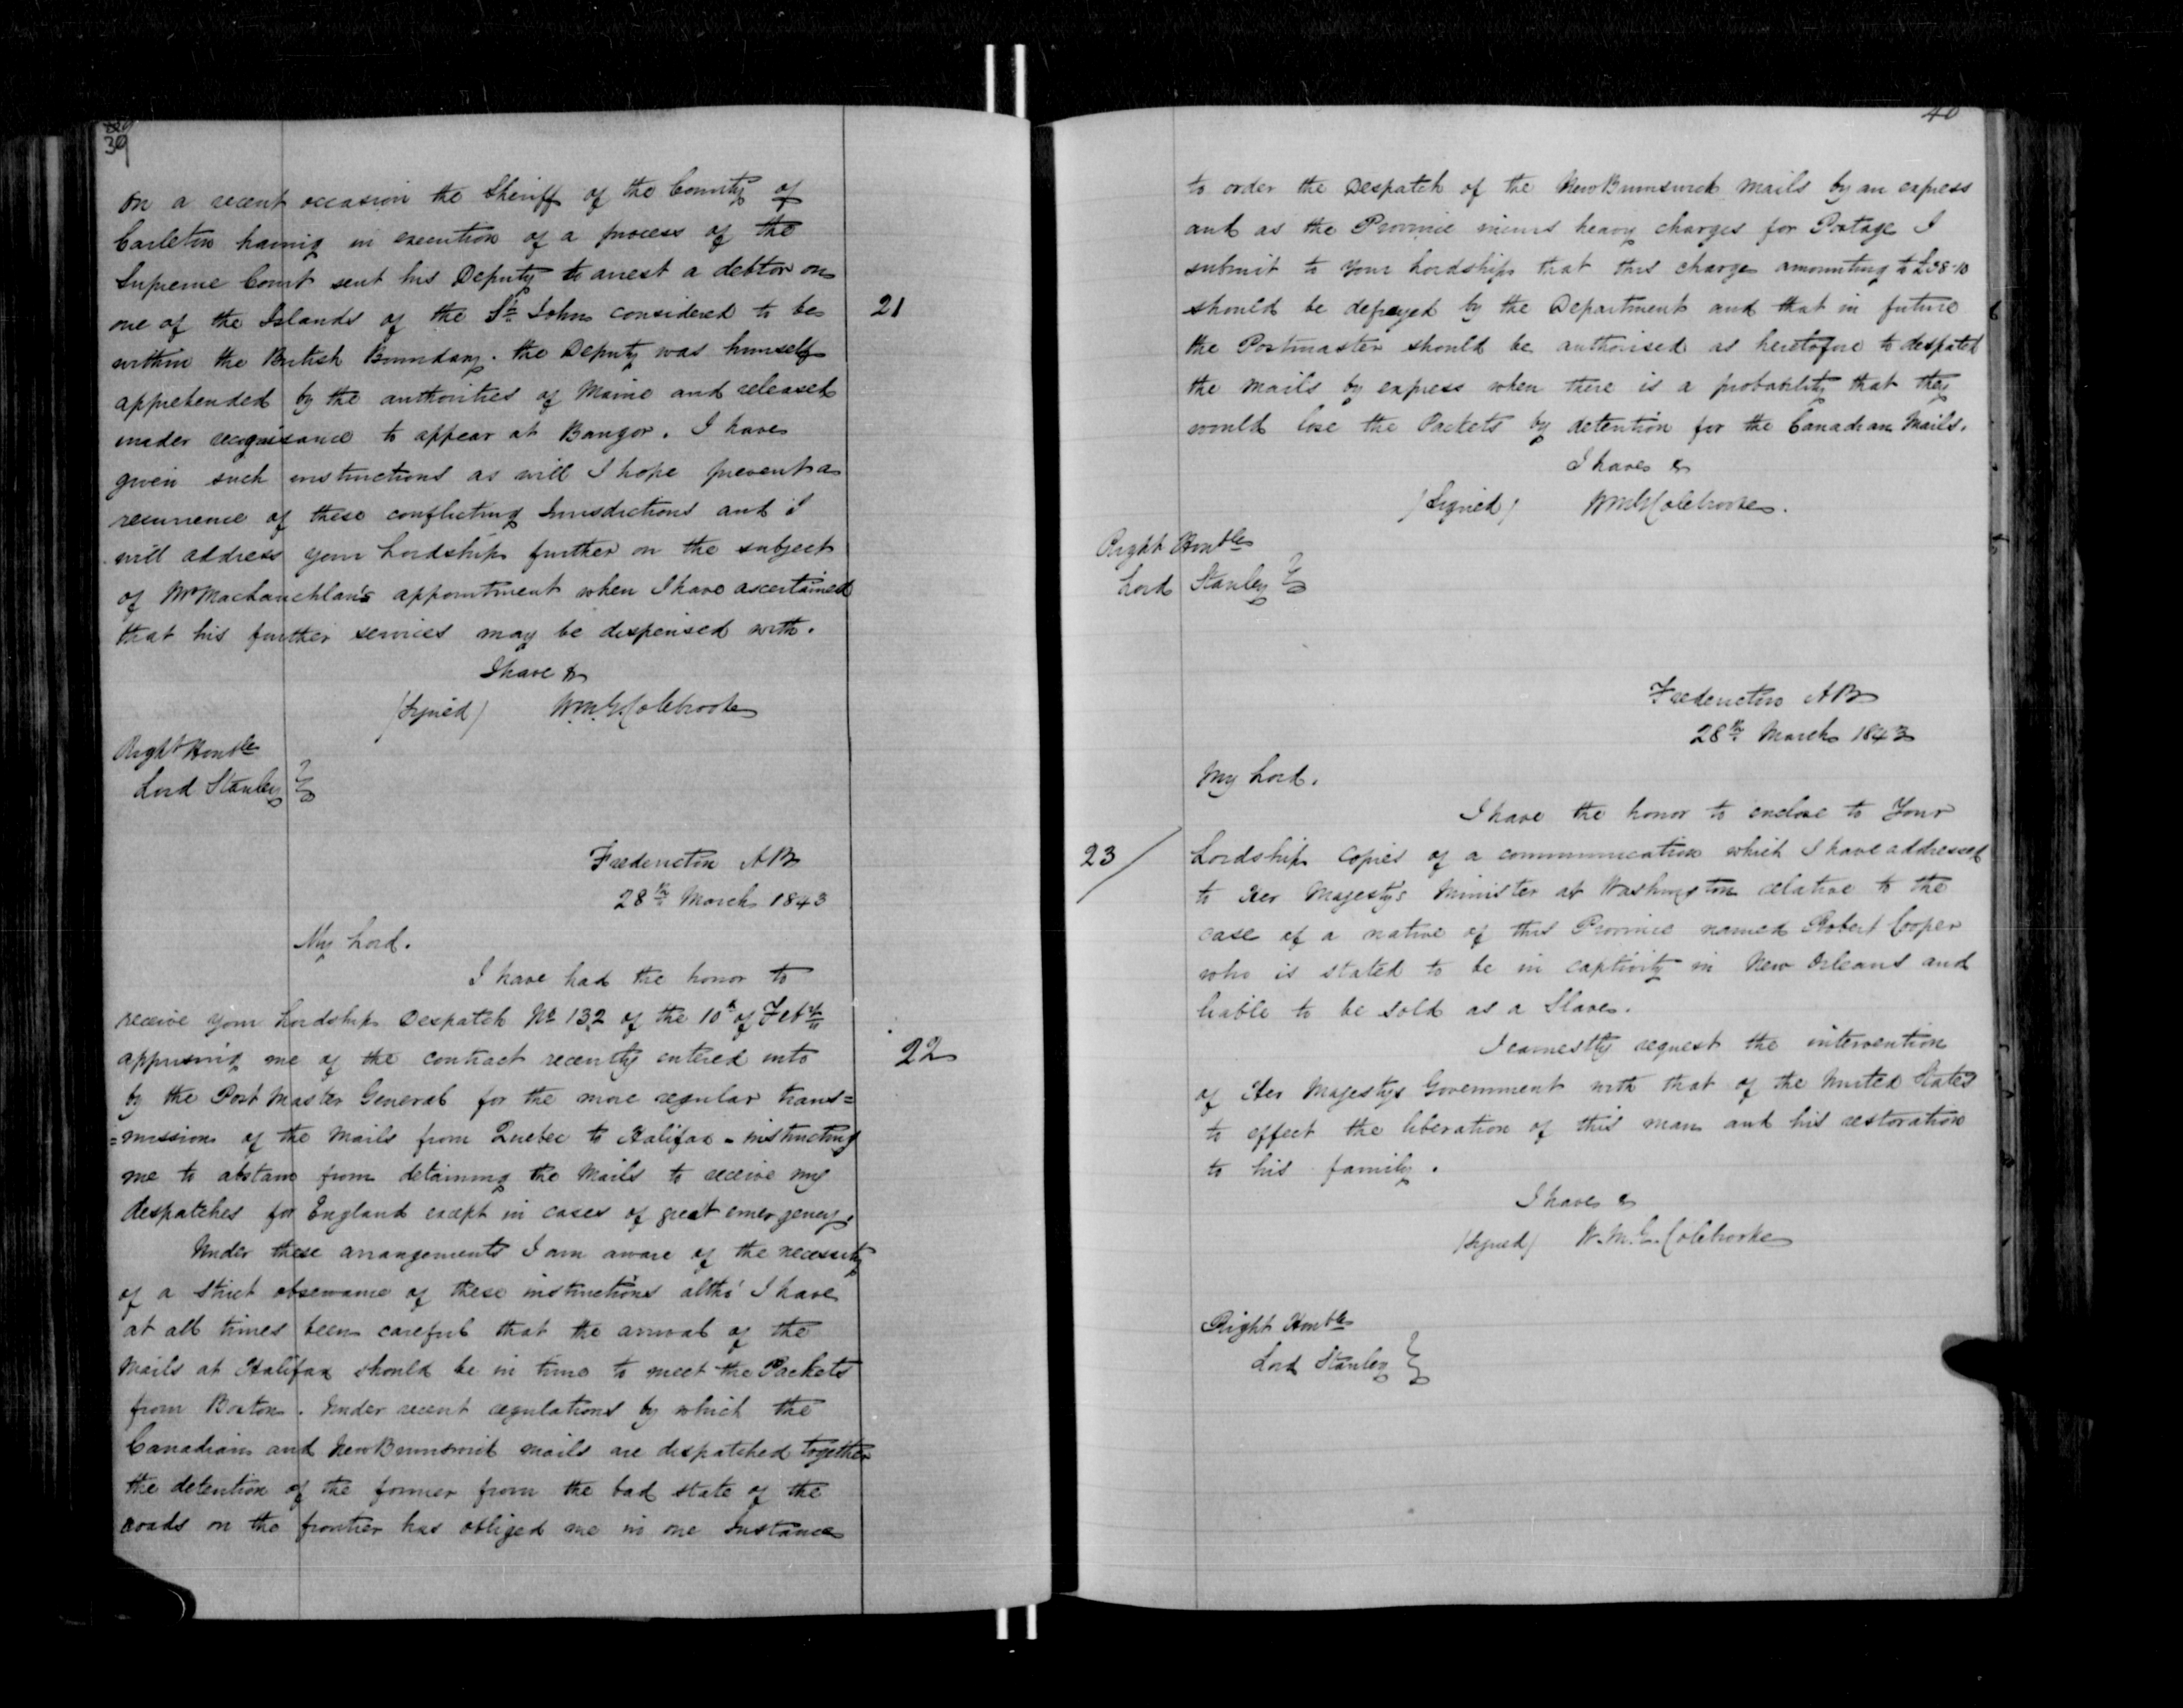 39
On a recent occasion the Sheriff of the County of
Carleton having in execution of a process of the
Supreme Court sent his Deputy to arrest a debtor on
one of the Islands of the St. John considered to be
21
within the British Boundary. the Deputy was himself
apprehended by the authorities of Maine and released
under recognisance to appear at Bangor. I have
given such instructions as will I hope prevent a
recurrence of these conflicting Jurisdictions and I
will address your Lordship further on the subject
of Mr MacLauchlan's appointment when I have ascertained
that his further services may be dispensed with.
I have &
/Signed/ Wm. G Colebrooke
Right Honble
Lord Stanley
Fredericton NB
28th March 1843
My Lord.
I have had the honor to
receive your Lordships Despatch No 132 of the 10th of Feby
apprising me of the contract recently entered into
22
by the Post Master General for the more regular trans=
=mission of the Mails from Quebec to Halifax - instructing
me to abstain from detaining the Mails to receive my
despatches for England except in cases of great emergency.
Under these arrangements I am aware of the necessity
of a strict observance of these instructions altho' I have
at all times been careful that the arrival of the
Mails at Halifax should be in time to meet the Packets
from Boston. Under recent regulations by which the
Canadian and New Brunswick mails are despatched together
the detention of the former from the bad state of the
roads on the frontier has obliged me in one Instance
40
to order the Despatch of the New Brunswick Mails by an express
and as the Province incurs heavy charges for Postage I
submit to your Lordship that this charge amounting to
should be defrayed by the Department and that in future
the Postmaster should be authorised as heretofore to despatch
the Mails by express when there is a probability that they
would lose the Packets by detention for the Canadian Mails.
I have &
/Signed/ Wm G Colebrooke.
Right Honble
Lord Stanley
Fredericton NB
28th March 1843
My Lord.
I have the honor to enclose to Your
23/
Lordship copies of a communication which I have addressed
to Her Majesty's Minister at Washington relative to the
case of a native of this Province named Robert Cooper
who is stated to be in captivity in New Orleans and
liable to be sold as a Slave.
I earnestly request the intervention
of Her Majestys Government with that of the United States
to effect the liberation of this man and his restoration
to his family.
I have &
/Signed/ W. M. G. Colebrooke
Right Honble
Lord Stanley